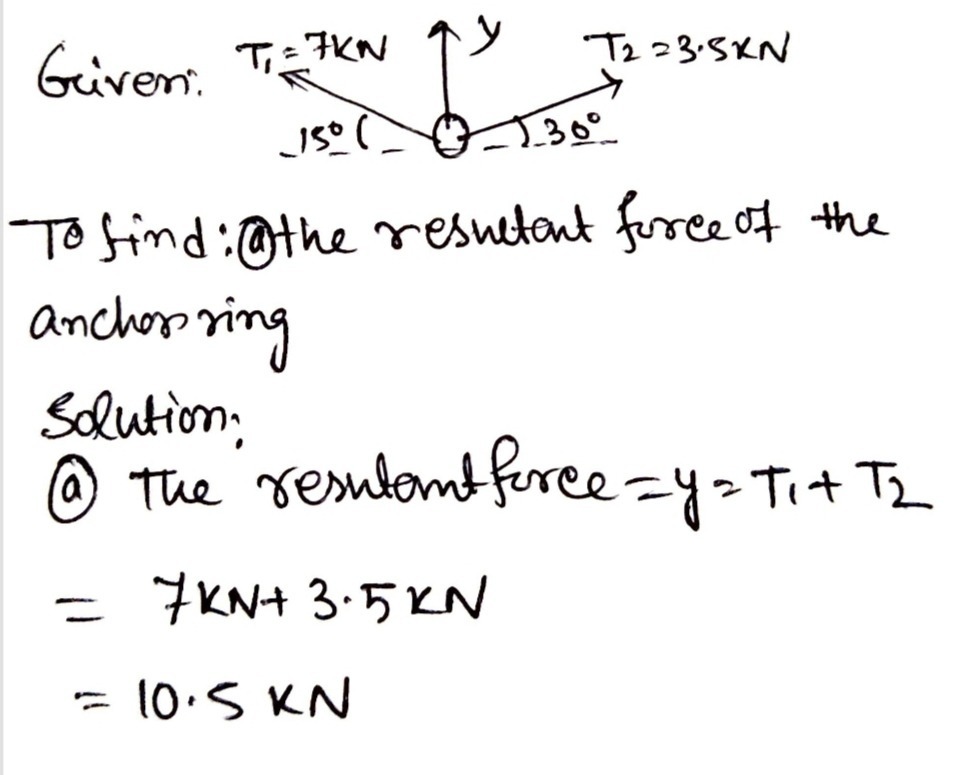 Given: T₁=7KN y T₂=3.5KN
15° 30°
To find: ⓐ the resultant force of the
anchor ring
Solution:
ⓐ The resultant force = y = T₁ + T₂
= 7KN + 3.5 KN
= 10.5 KN